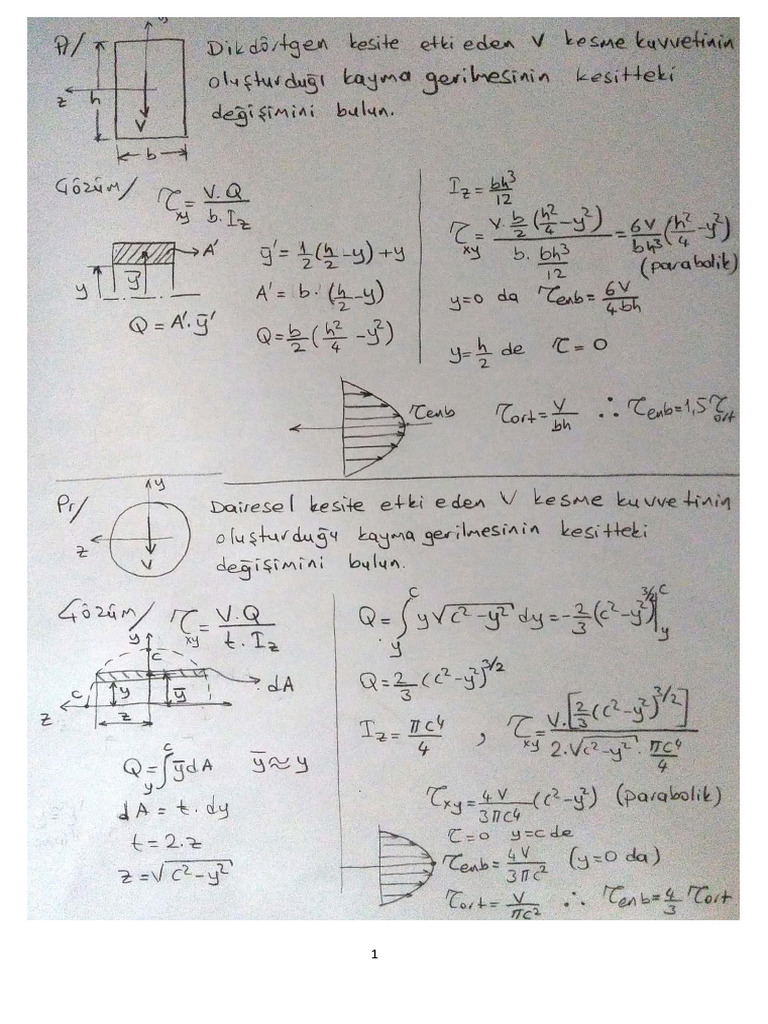 Pr/ Dikdörtgen kesite etki eden V kesme kuvvetinin
oluşturduğı kayma gerilmesinin kesitteki
değişimini bulun.
y
z
h
V
b
Çözüm/ τxy = V.Q / b.Iz
A'
y
ȳ'
Q = A'.ȳ'
ȳ' = 1/2 (h/2 - y) + y
A' = b.(h/2 - y)
Q = b/2 (h²/4 - y²)
Iz = bh³/12
τxy = V.b/2 (h²/4 - y²) / b.bh³/12 = 6V/bh³ (h²/4 - y²)
(parabolik)
y=0 da τenb = 6V/4bh
y = h/2 de τ = 0
τenb
τort = V/bh ∴ τenb = 1,5 τort
Pr/ Dairesel kesite etki eden V kesme kuvvetinin
oluşturduğu kayma gerilmesinin kesitteki
değişimini bulun.
y
z
V
Çözüm/ τxy = V.Q / t.Iz
y
c
c
y
ȳ
dA
z
z
Q = ∫_y^c ȳ dA ȳ ≈ y
dA = t.dy
t = 2.z
z = √(c² - y²)
Q = ∫_y^c y√(c² - y²) dy = -2/3 (c² - y²)^3/2 |_y^c
Q = 2/3 (c² - y²)^3/2
Iz = πc⁴/4 , τxy = V.[2/3 (c² - y²)^3/2] / 2.√(c² - y²) . πc⁴/4
τxy = 4V/3πc⁴ (c² - y²) (parabolik)
τ=0 y=c de
τenb = 4V/3πc² (y=0 da)
τort = V/πc² ∴ τenb = 4/3 τort
1